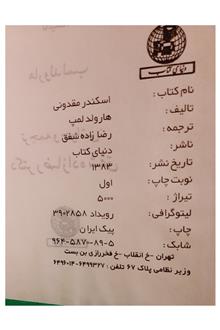 دنیای کتاب
نام کتاب: اسکندر مقدونی
تالیف: هارولد لمپ
ترجمه: رضا زاده شفق
ناشر: دنیای کتاب
تاریخ نشر: ۱۳۸۳
نوبت چاپ: اول
تیراژ: ۵۰۰۰
لیتوگرافی: رویداد ۳۹۰۲۸۵۸
چاپ: پیک ایران
شابک: ۹۶۴-۵۸۷۰-۸۹-۵
تهران -خ انقلاب -خ فخررازی بن بست
وزیر نظامی پلاک ۶۷ تلفن: ۶۴۹۹۳۲۷-۶۴۹۶۰۱۴